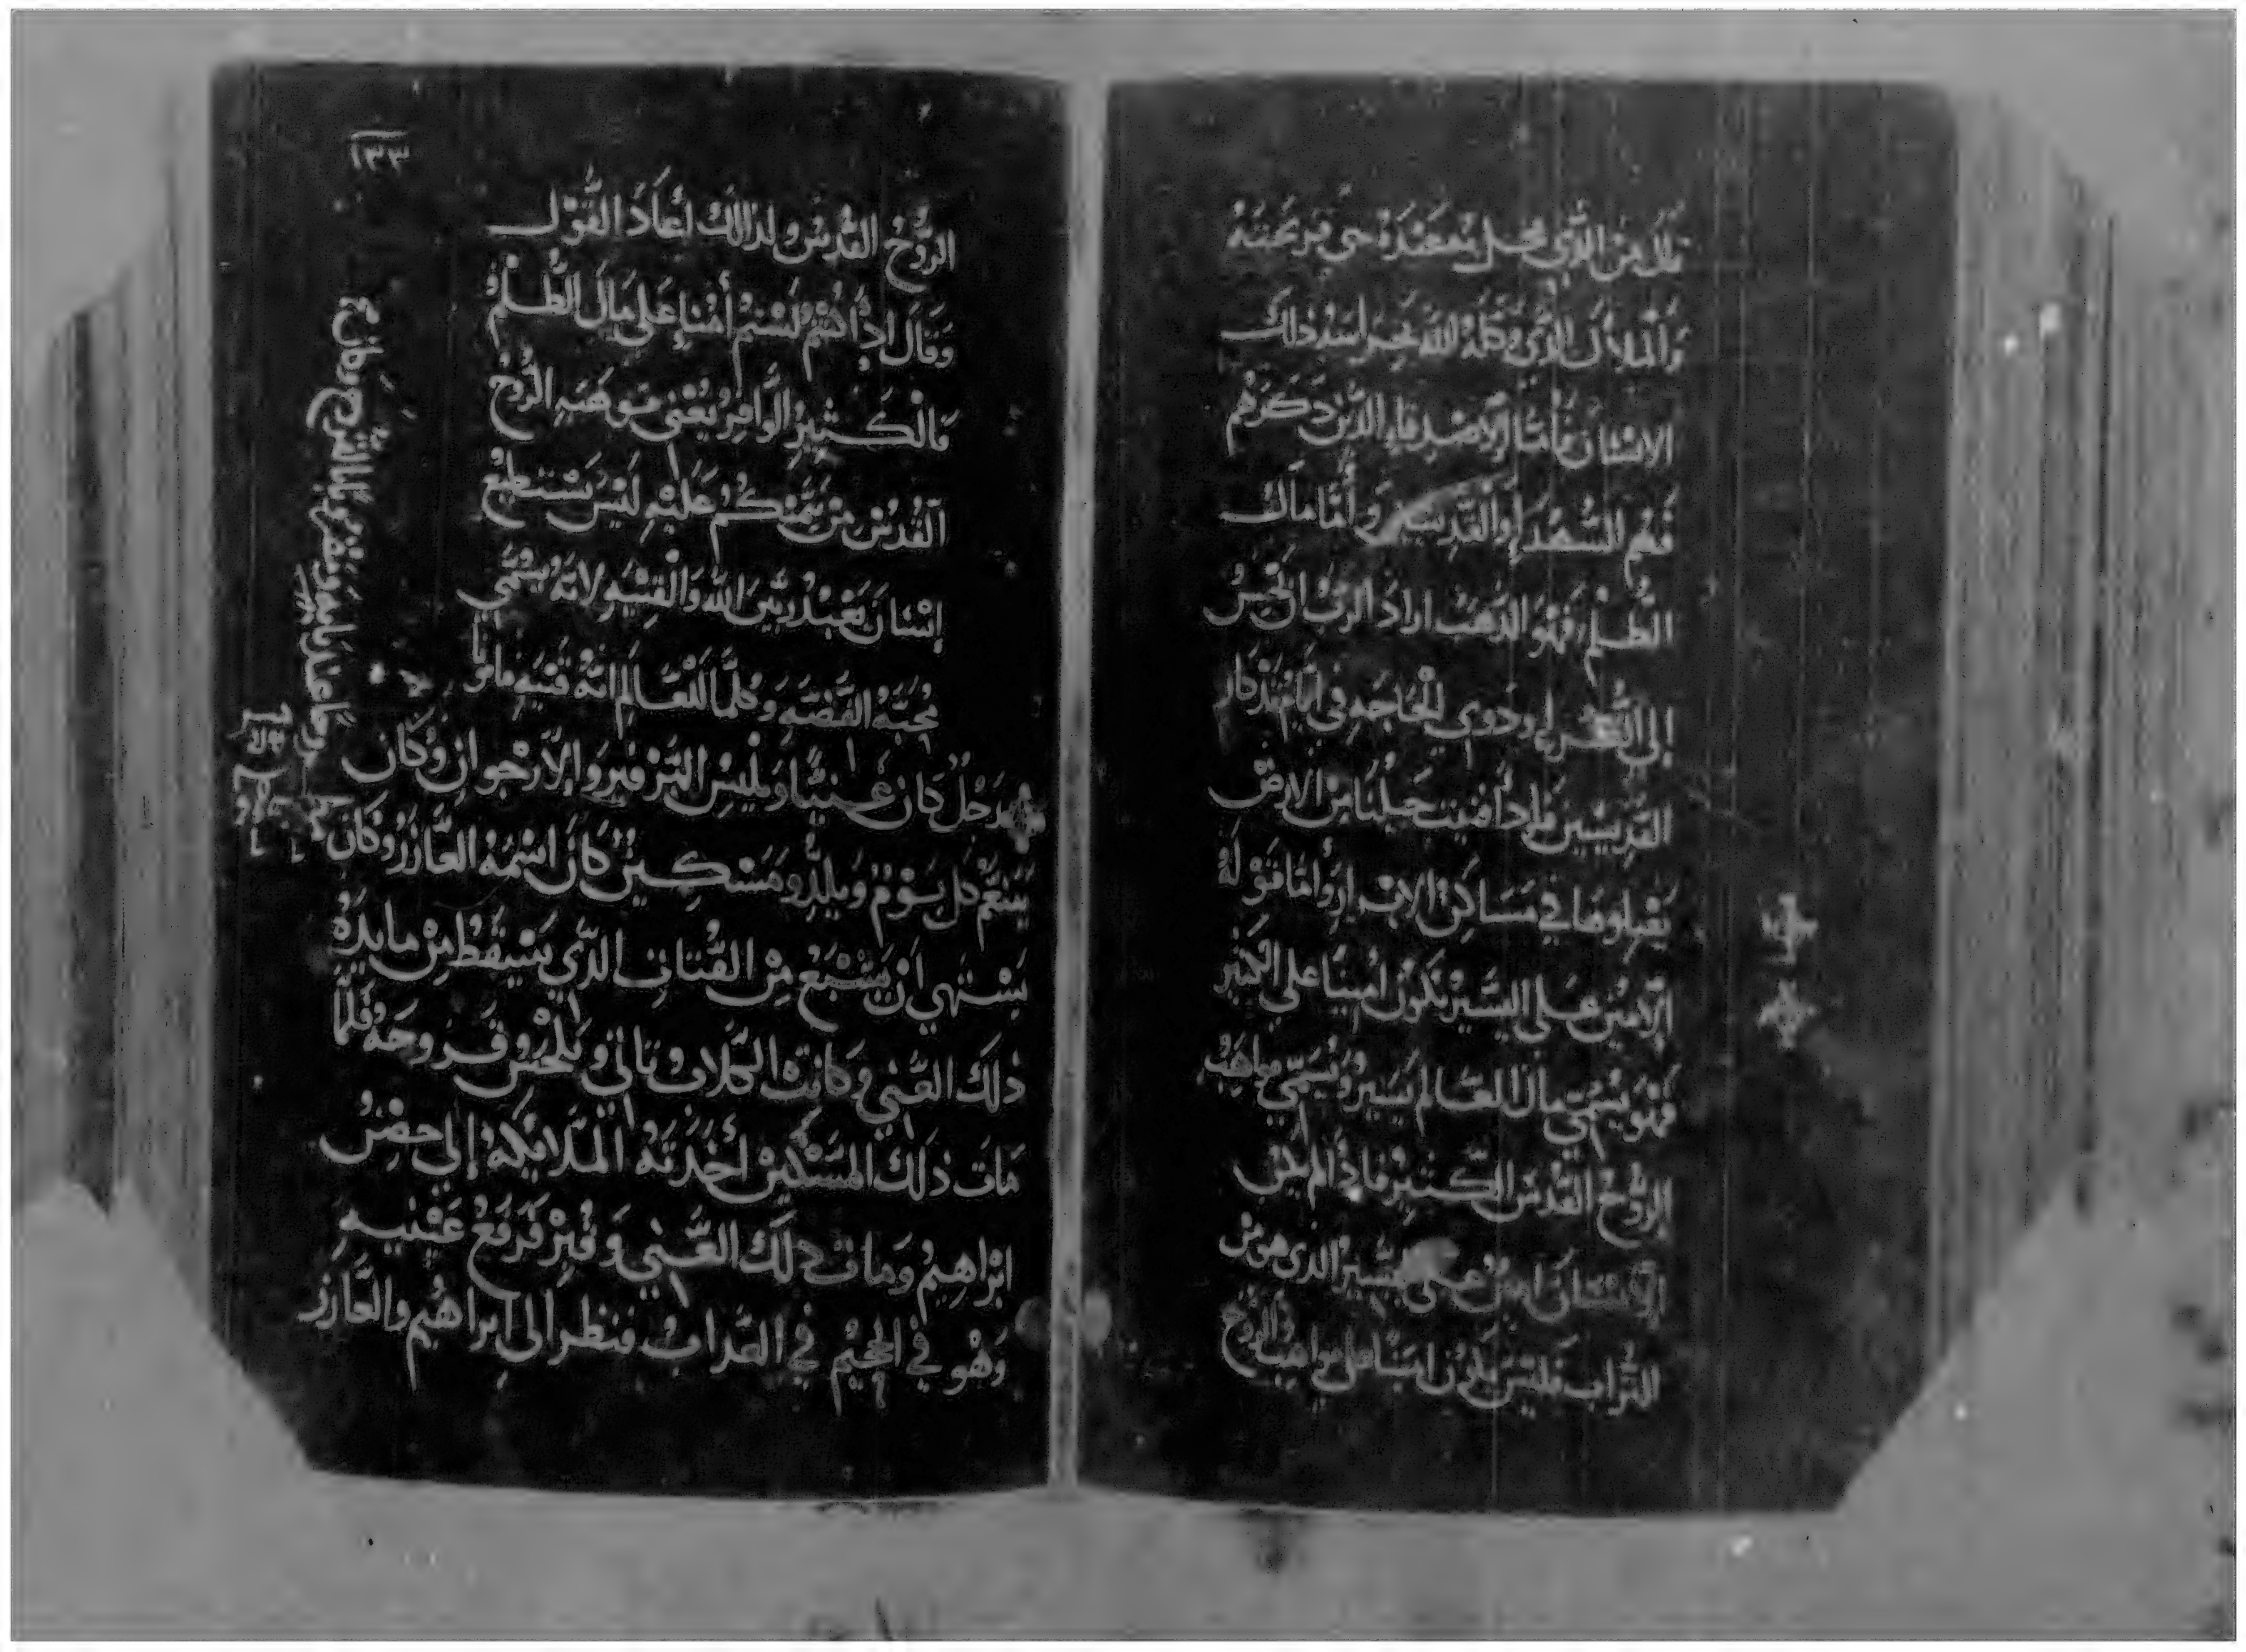 والملاك الذي وكله الله بحراسة ذلك
الانسان فأما الاصدقاء الذين ذكرهم
فهم الشهداء والقديسين وأما مال
الظلم فهو الذهب اراد الرب ان نحسن
إلى الفقراء وذوي الحاجه في ايام تذكار
القديسين فاذا فنيت حياتنا من الارض
يقبلوها في مساكن الابرار وأما قوله
الامين على اليسير يكون امينا على الكثير
فهو يسمي مال العالم يسير ويسمي مواهب
الروح القدس الكثير فاذا لم يكن
الانسان امين على اليسير الذي هو من
التراب فليس يكون امينا على مواهب الروح
١٣٣
الرُّوح القدس ولذالك أعاد القول
وقال اذا كنتم لستم أمناء على مال الظلم
فالكثير الوافر يعني موهبه الروح
القدس من يمنكم عليه ليس يستطيع
إنسان يعبد ربين الله والقنيه لانه يسمي
محبة الفضه وكلما للعالم انه قنيه مارنا
رجل كان غنيا ويلبس البرفير والارجوان وكان
يتنعم كل يوم ويلذ ومسكين كان اسمه العازر وكان
يشتهي ان يشبع من الفتات الذي يسقط من مايده
ذلك الغني وكانت الكلاب تاتي وتلحس قروحه فلما
مات ذلك المسكين أخذته الملايكه إلى حضن
ابراهيم ومات ذلك الغني وقبر فرفع عينيه
وهو في الجحيم في العذاب فنظر الى ابراهيم والعازر